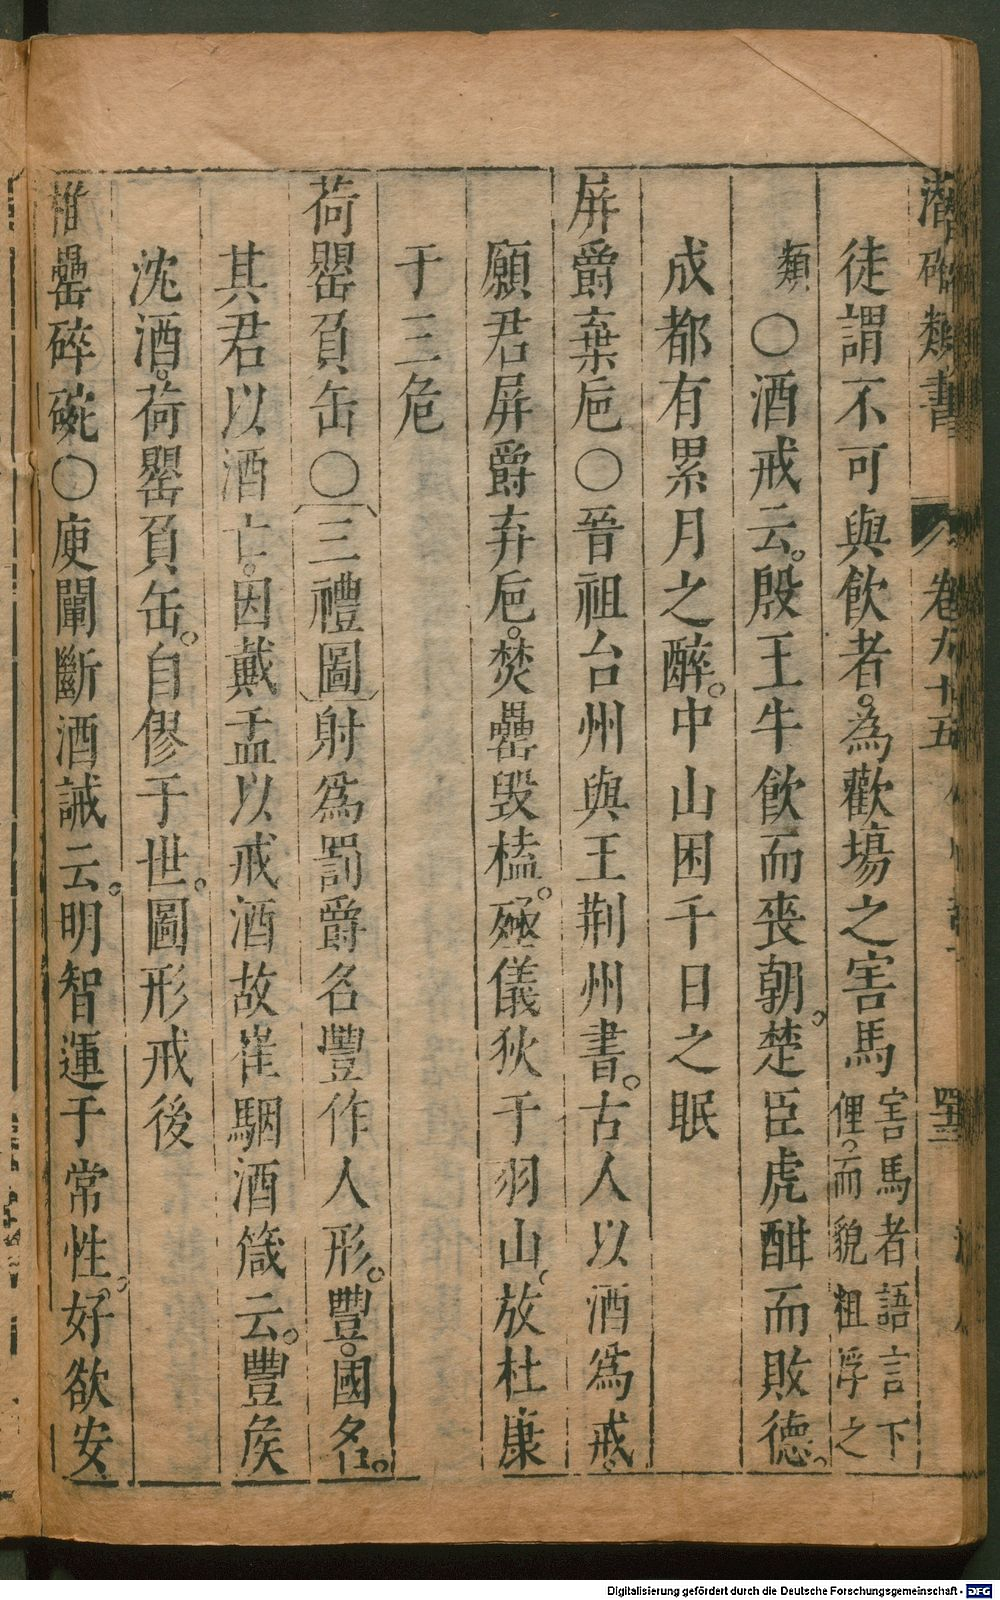 潛確類書 卷九十五 四三
徒謂不可與飲者。為歡塲之害馬 害馬者語言下
俚。而貌粗浮之
類 〇酒戒云。殷王牛飲而喪朝。楚臣虎酣而敗德。
成都有累月之醉。中山困千日之眠
屏爵棄巵〇晉祖台州與王荆州書。古人以酒為戒。
願君屏爵弃巵。焚罍毀榼。殛儀狄于羽山。放杜康
于三危
荷罌負缶〇三禮圖射爲罰爵名豐作人形。豐。國名。
其君以酒亡。因戴盂以戒酒故崔駰酒箴云。豐矦
沈酒。荷罌負缶。自僇于世。圖形戒後
椎罍碎碗〇庾闡斷酒誡云。明智運于常性。好欲安
Digitalisierung gefördert durch die Deutsche Forschungsgemeinschaft - DFG